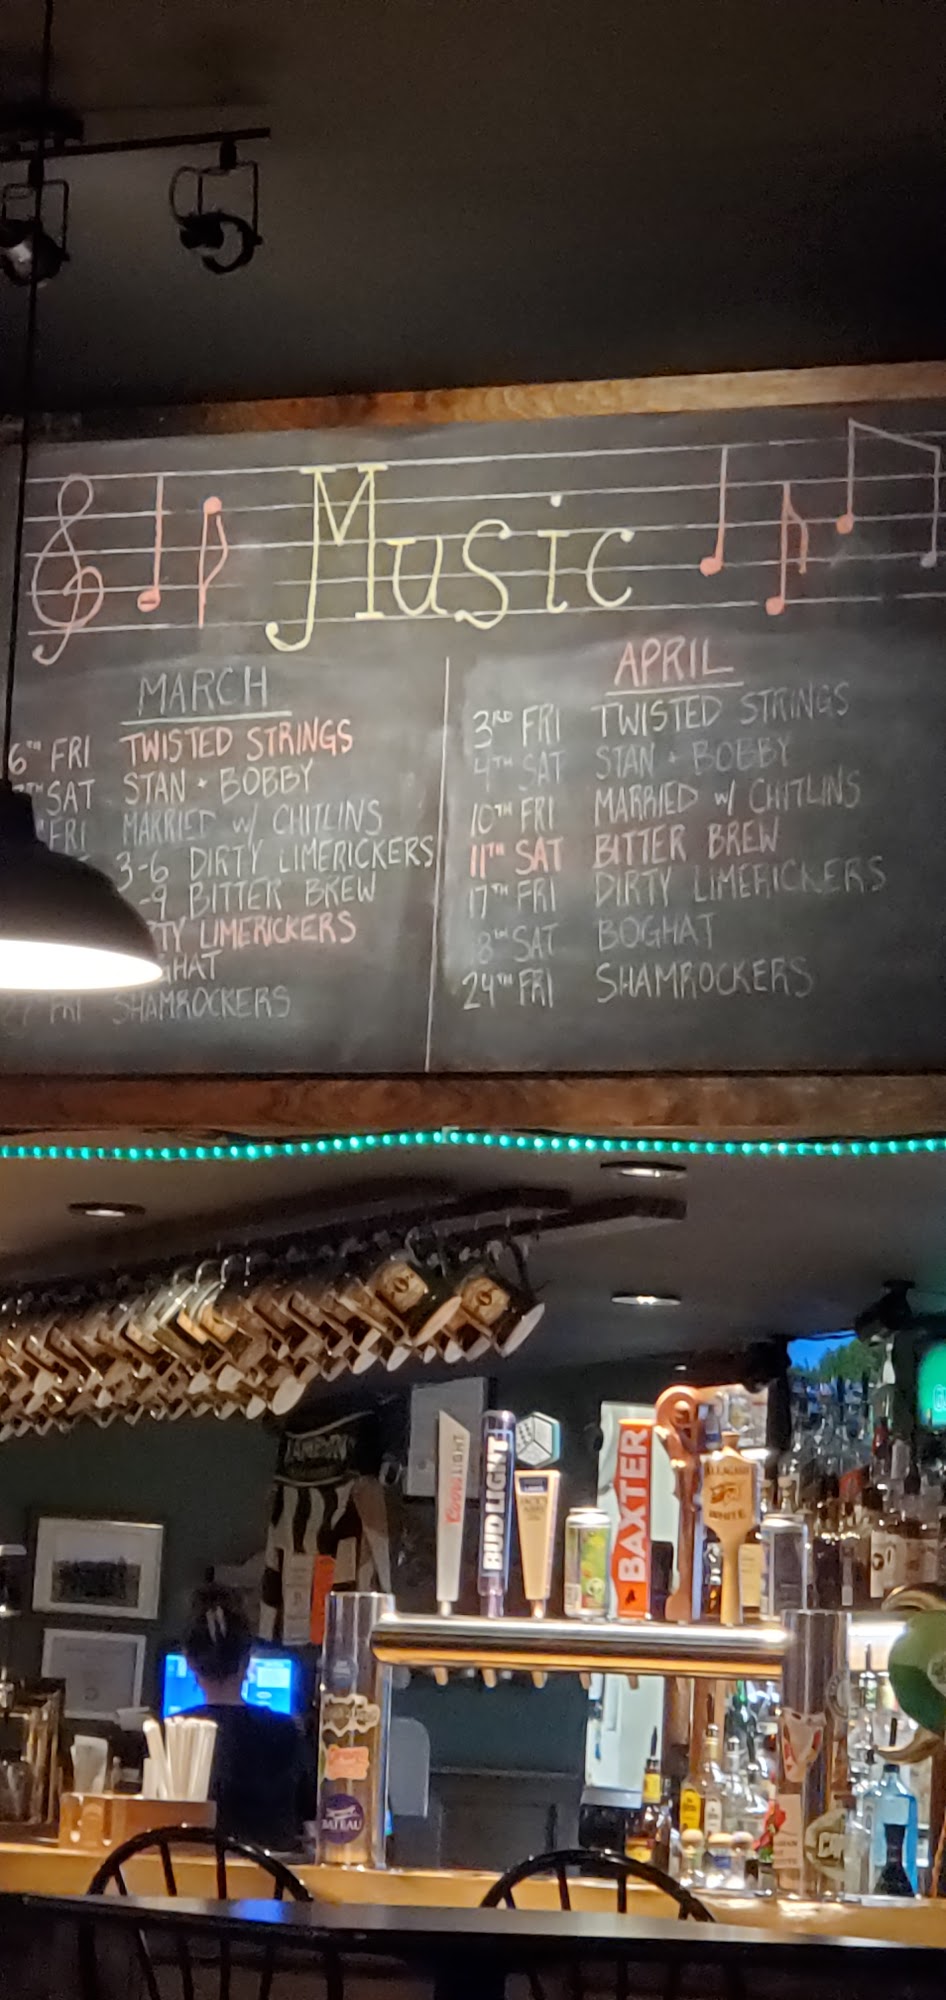 Music
MARCH
6TH FRI TWISTED STRINGS
SAT STAN + BOBBY
FRI MARRIED w/ CHITLINS
3-6 DIRTY LIMERICKERS
-9 BITTER BREW
TY LIMERICKERS
GHAT
FRI SHAMROCKERS
APRIL
3RD FRI TWISTED STRINGS
4TH SAT STAN + BOBBY
10TH FRI MARRIED w/ CHITLINS
11TH SAT BITTER BREW
17TH FRI DIRTY LIMERICKERS
18TH SAT BOGHAT
24TH FRI SHAMROCKERS
Coors LIGHT
BUD LIGHT
BAXTER
WHITE
BATEAU